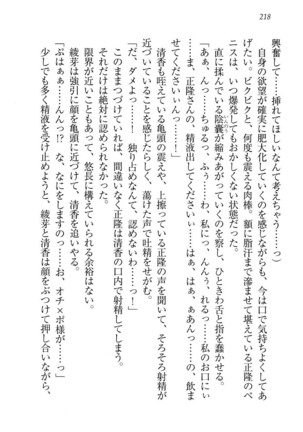 218
興奮して……っ、挿れてほしいなんて考えちゃう……っ）
自身の欲望が確実に肥大化していくのを感じながら、今は口で気持ちよくしてあ
げたい。ビクビクと、何度も震える肉棒。額に脂汗まで滲ませて堪えている正隆のペ
ニスは、いつ爆発してもおかしくない状態だった。
直に揉んでいる陰嚢が縮みあがっていくのを察し、ひときわ舌と指を蠢かせる。
「あぁ、ん……んっ……ちゅるっ、ふぅ……わ、私に、んんぅ、れるっ……私のお口にぃ
っ……は、正隆さんの、精液、出してくださいぃ……はぁ、はぁ、ぁあんっ……の、飲ま
せてくださいぃんっ……！」
清香の咥えている亀頭の震えや、上擦っている正隆の声を聞いて、そろそろ射精が
近づいていることを感じたらしく、蕩けた声で吐精をせがむ。
「だ、ダメよっ……！　独り占めなんて、認めないわ……っ！」
このままつづけていれば、間違いなく正隆は清香の口内で射精してしまう。
それだけは絶対に認められなかった。
限界が近いこともあって、悠長に構えていられる余裕はない。
綾芽は強引に顔を亀頭に近づけて、清香を追いやる。
「ぷはぁぁ……んんっ!?　な、なにをするのっ……お、オチ×ポ様が……っ」
少しでも多く精液を受け止めようと、綾芽と清香は顔をぶつけて押し合いながら、